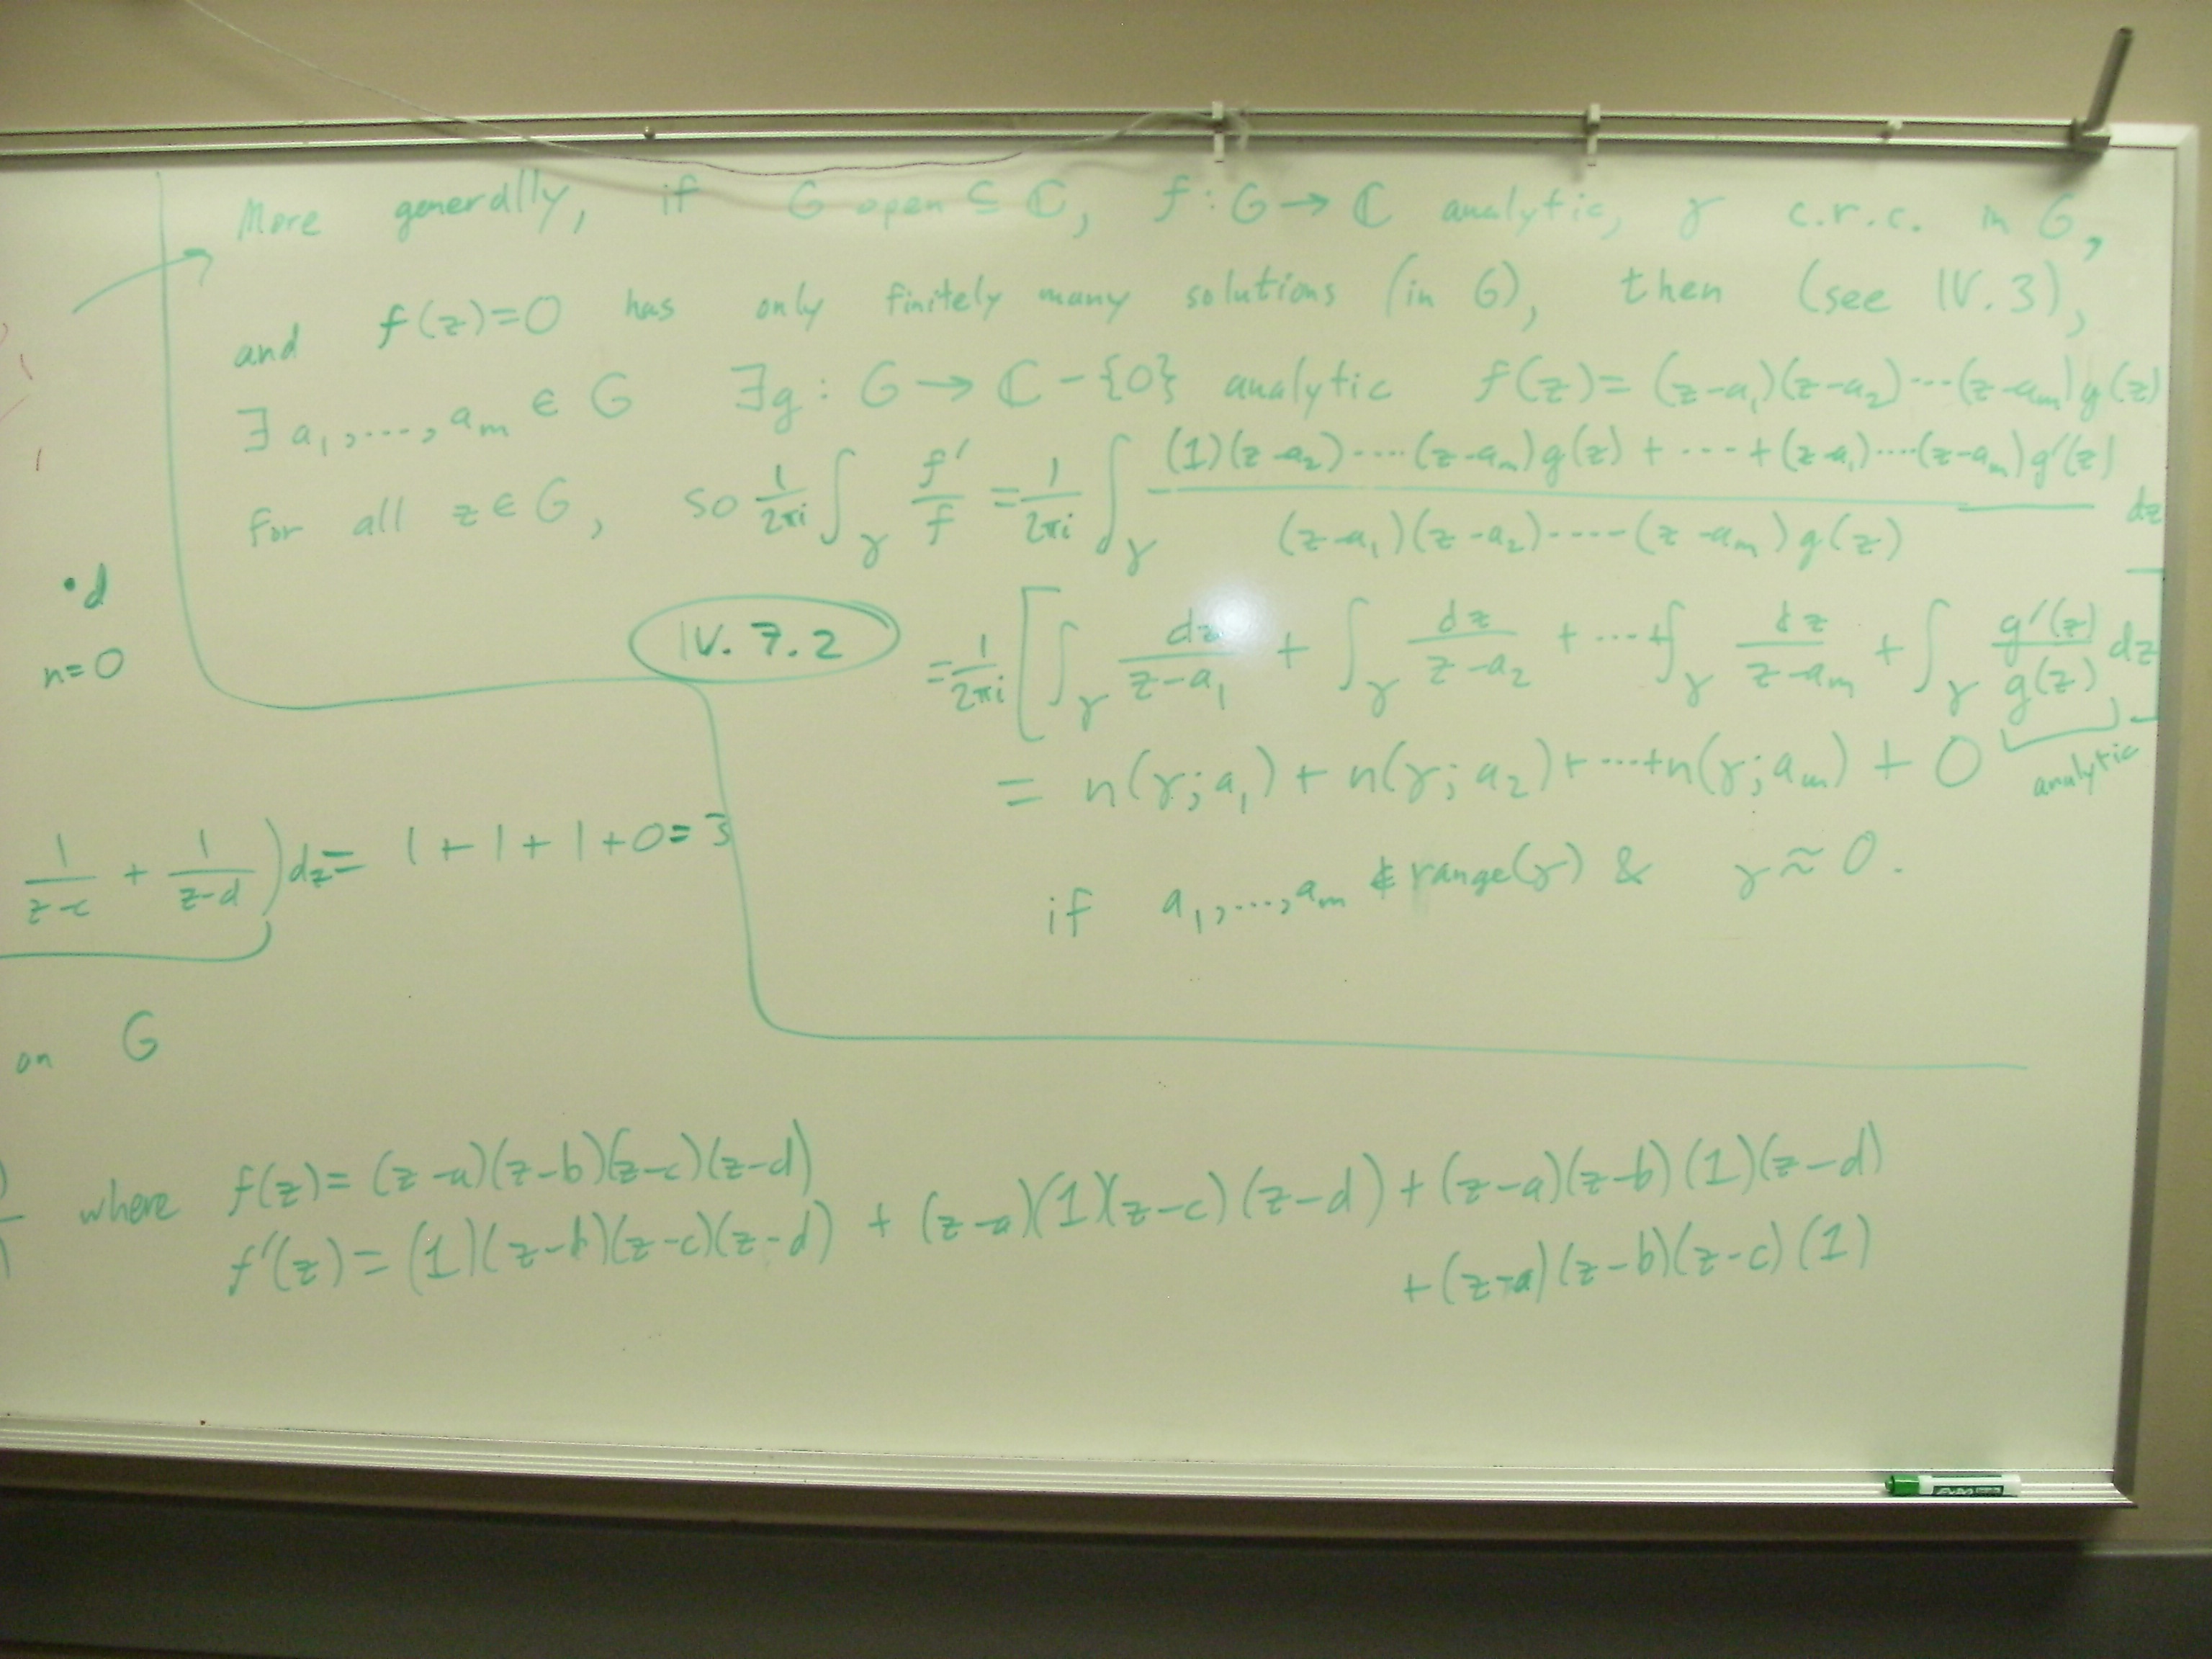 More generally, if G open ⊆ ℂ, f : G → ℂ analytic, γ c.r.c. in G,
and f(z)=0 has only finitely many solutions (in G), then (see IV.3),
∃ a₁,....,aₘ ∈ G ∃g : G → ℂ - {0} analytic f(z) = (z-a₁)(z-a₂)···(z-aₘ)g(z)
for all z ∈ G, so 1/2πi ∫_γ f'/f = 1/2πi ∫_γ (1)(z-a₂)····(z-aₘ)g(z) + ···· + (z-a₁)····(z-aₘ)g'(z) / (z-a₁)(z-a₂)·····(z-aₘ)g(z) dz
IV. 7. 2
= 1/2πi [ ∫_γ dz/z-a₁ + ∫_γ dz/z-a₂ + ···+ ∫_γ dz/z-aₘ + ∫_γ g'(z)/g(z) dz ]
analytic
= n(γ; a₁) + n(γ; a₂) + ···+ n(γ; aₘ) + 0
if a₁,....,aₘ ∉ range(γ) & γ ≈ 0.
• d
n = 0
1/z-c + 1/z-d ) dz = 1 + 1 + 1 + 0 = 3
on G
where f(z) = (z-a)(z-b)(z-c)(z-d)
f'(z) = (1)(z-b)(z-c)(z-d) + (z-a)(1)(z-c)(z-d) + (z-a)(z-b)(1)(z-d)
+ (z-a)(z-b)(z-c)(1)
EXPO